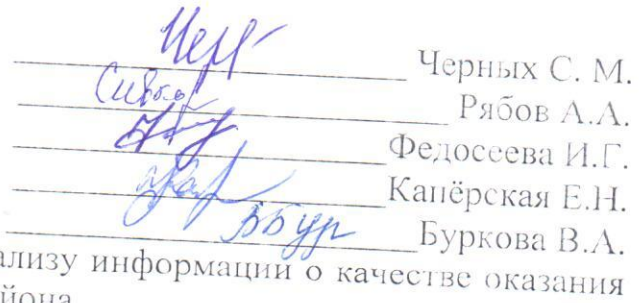 Черных С. М.
Рябов А.А.
Федосеева И.Г.
Капёрская Е.Н.
ББур Буркова В.А.
ализу информации о качестве оказания
йона